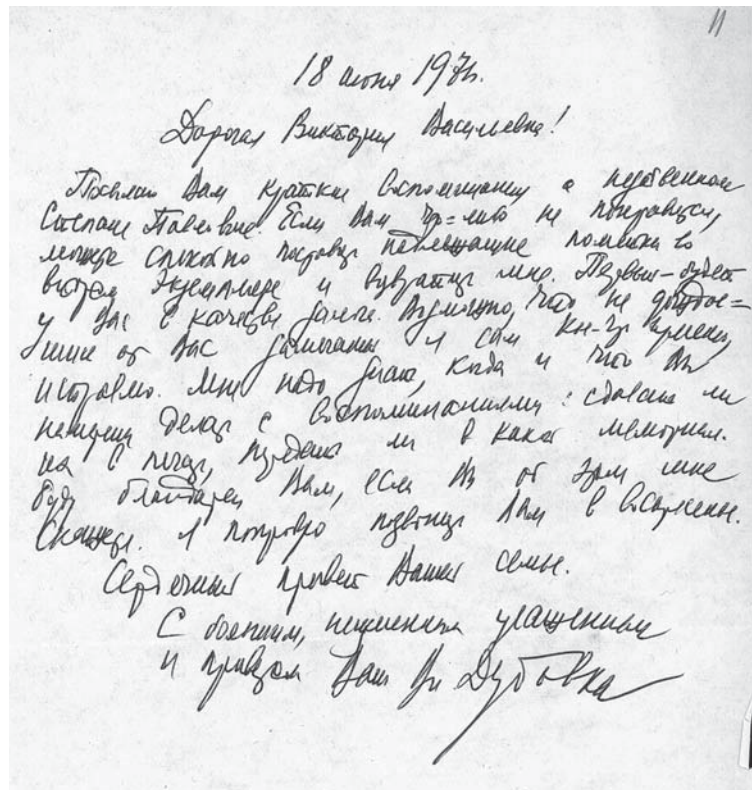 11
18 июня 197 г.
Дорогая Виктория Васильевна!
Посылаю Вам краткие воспоминания о
Степане Павловиче. Если Вам что-либо не понравится,
можете спокойно поставить пометки во
втором экземпляре и возвратить мне. Первый – будет
у Вас в качестве залога. Возможно, что не
от Вас я сам кн-
исправлю. Мне надо знать, когда и что Вы
делать с воспоминаниями: сдавать ли
их в печать, передать ли в какой мемориал.
Буду благодарен Вам, если Вы об этом мне
скажете. Я попробую позвонить Вам в воскресенье.
Сердечный привет Вашей семье.
С большим, неизменным уважением
и приветом Ваш Вл Дубовка